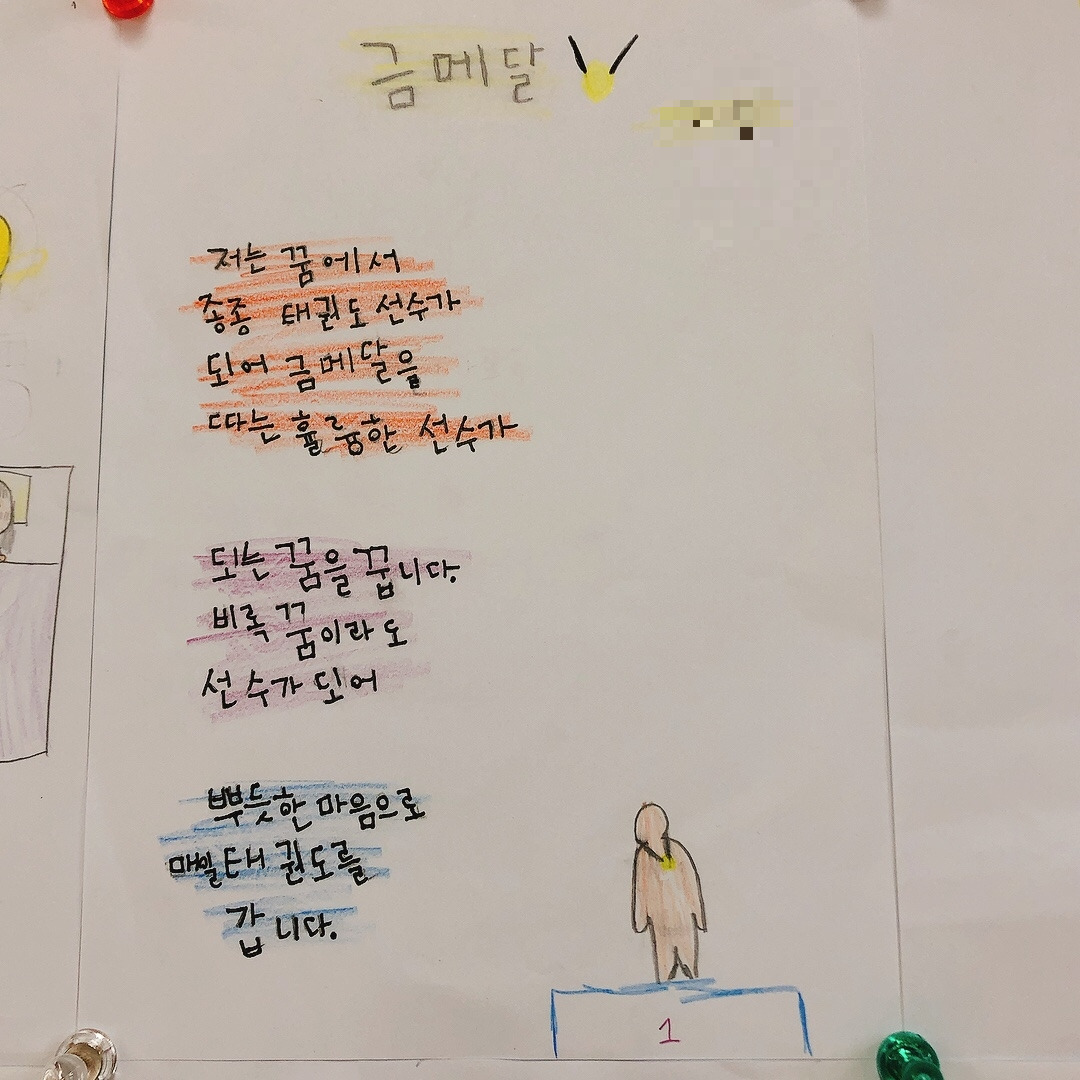 금메달
저는 꿈에서
종종 태권도 선수가
되어 금메달을
따는 훌륭한 선수가
되는 꿈을 꿉니다.
비록 꿈이라도
선수가 되어
뿌듯한 마음으로
매일 태권도를
갑니다.
1